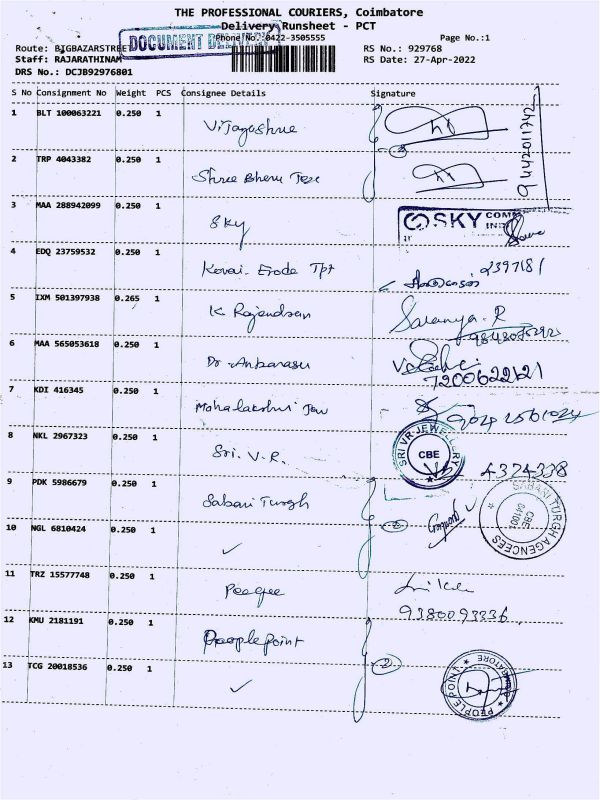 THE PROFESSIONAL COURIERS, Coimbatore
Delivery Runsheet - PCT
DOCUMENT
Phone No.:0422-3505555 Page No.:1
Route: BIGBAZARSTREE RS No.: 929768
Staff: RAJARATHINAM RS Date: 27-Apr-2022
DRS No.: DCJB92976801
S No Consignment No Weight PCS Consignee Details Signature
1 BLT 100063221 0.250 1 Vijayashree
9442011742
2 TRP 4043382 0.250 1 Shree Bheru Tex
3 MAA 288942099 0.250 1 Sky
SKY COMM
4 EDQ 23759532 0.250 1 Kovai-Erode Tpt 2397181
5 IXM 501397938 0.265 1 K Rajendran Saranya.R
6 MAA 565053618 0.250 1 Dr Anbarasu
7200622621
7 KDI 416345 0.250 1 Mahalakshmi Jew
8 NKL 2967323 0.250 1 Sri. V.R.
SRI VR JEWELLERY CBE
4374338
9 PDK 5986679 0.250 1 Sabari Turgh
2
SABARI TURGH AGENCEES CBE 641001
10 NGL 6810424 0.250 1 ✓
11 TRZ 15577748 0.250 1 Peegee
9380093336
12 KMU 2181191 0.250 1 Peoplepoint
2
13 TCG 20018536 0.250 1 ✓